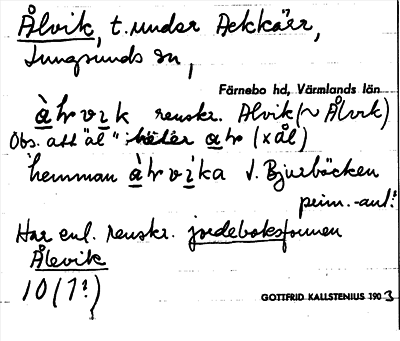 Ålvik, t. under Aekkärr,
Lungsunds sn,
Färnebo hd, Värmlands län
àlvik renskr. Alvik (~ Ålvik)
Obs. att "ål" heter al (x ål)
hemman àlvìka V. Bjurbäcken
prim.-anl.?
Har enl. renskr. jordeboksformen
Ålevik
10 (7?)
GOTTFRID KALLSTENIUS 1903